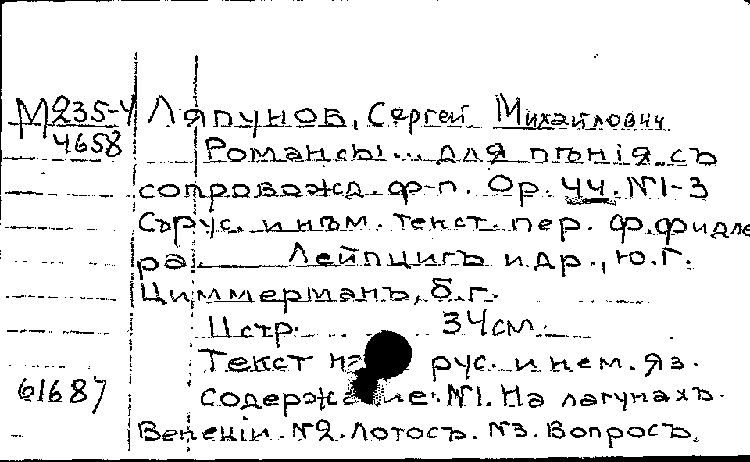 М235-4 Ляпунов, Сергей Михайлович
4658 Романсы... для пѣнія съ
сопровожд. ф-п. Ор. 44. №1-3
Съ рус. и нѣм. текст. пер. Ф. Фидле
ра. Лейпцигъ и др., Ю.Г.
Циммерманъ, б.г.
11 стр. 34 см.
Текст на рус. и нем. яз.
61687 Содержание: №1. На лагунахъ
Венеціи. №2. Лотосъ. №3. Вопросъ.